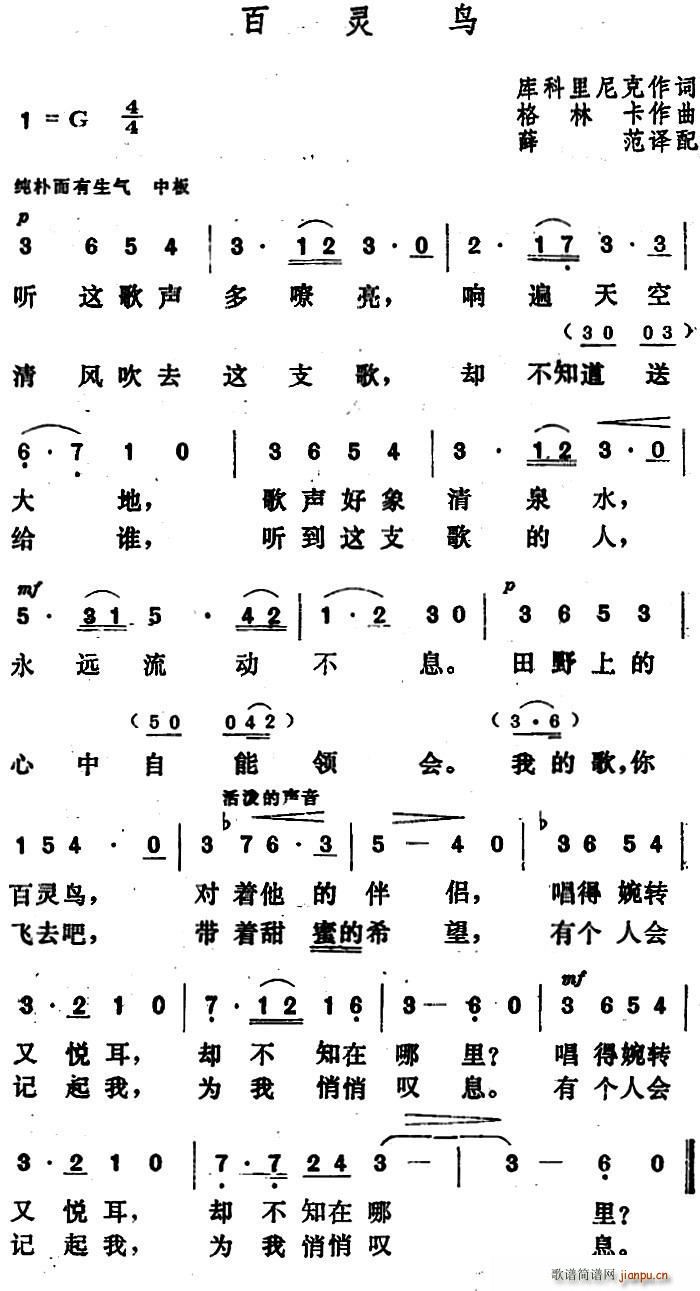 百灵鸟
库科里尼克作词
1 = G 4/4
格林卡作曲
薛范译配
纯朴而有生气 中板
p
3 6 5 4 | 3 · 1 2 3 · 0 | 2 · 1 7 3 · 3 |
听这歌声多嘹亮，响遍天空
(3 0 0 3)
清风吹去这支歌，却不知道送
6 · 7 1 0 | 3 6 5 4 | 3 · 1 2 3 · 0 |
大地，歌声好象清泉水，
给谁，听到这支歌的人，
mf p
5 · 3 1 5 · 4 2 | 1 · 2 3 0 | 3 6 5 3 |
永远流动不息。田野上的
(5 0 0 4 2) (3 · 6)
心中自能领会。我的歌，你
活泼的声音
1 5 4 · 0 | 3 ♭7 6 · 3 | 5 — 4 0 | ♭3 6 5 4 |
百灵鸟，对着他的伴侣，唱得婉转
飞去吧，带着甜蜜的希望，有个人会
mf
3 · 2 1 0 | 7 · 1 2 1 6 | 3 — 6 0 | 3 6 5 4 |
又悦耳，却不知在哪里？唱得婉转
记起我，为我悄悄叹息。有个人会
3 · 2 1 0 | 7 · 7 2 4 3 — | 3 — 6 0 ‖
又悦耳，却不知在哪里？
记起我，为我悄悄叹息。
歌谱简谱网 jianpu.cn